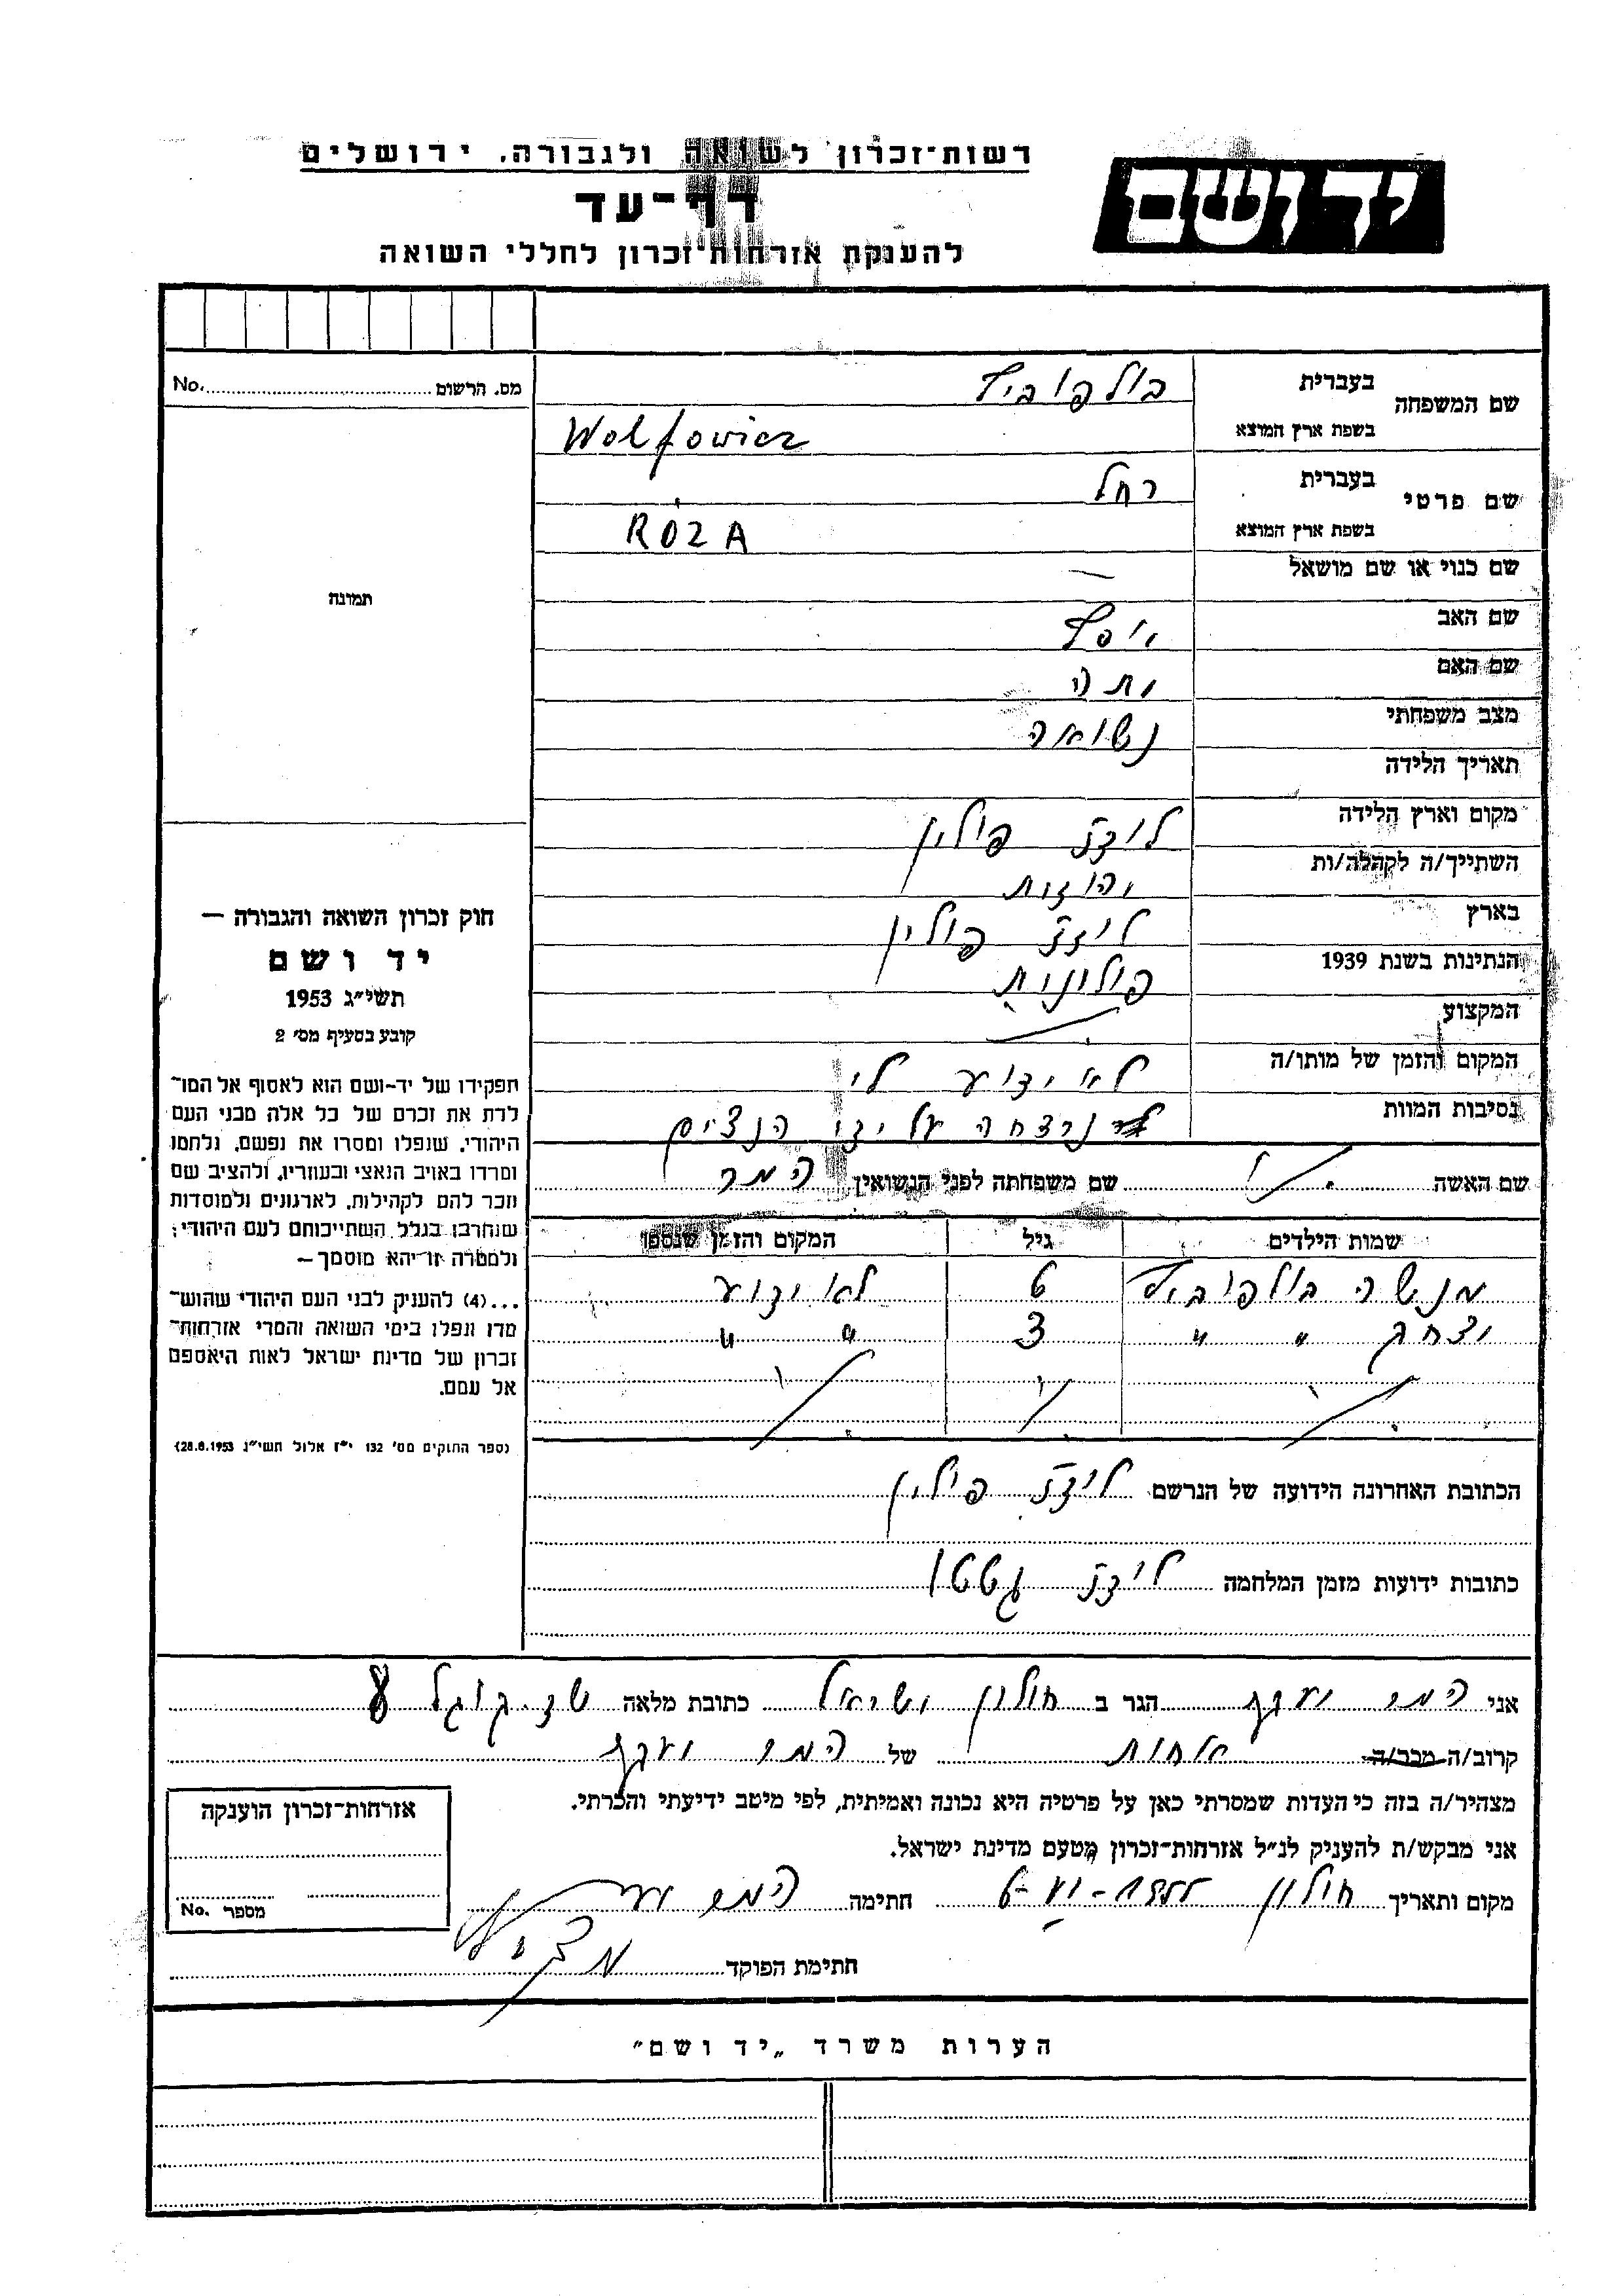 רשות־זכרון לשואה ולגבורה, ירושלים
יד ושם
דף־עד
להענקת אזרחות־זכרון לחללי השואה
שם המשפחה
בעברית וולפוביץ
בשפת ארץ המוצא Wolfowicz
שם פרטי
בעברית רחל
בשפת ארץ המוצא RÓZA
שם כנוי או שם מושאל —
שם האב
שם האם
מצב משפחתי נשואה
תאריך הלידה
מקום וארץ הלידה לודז פולין
השתייך/ה לקהלה/ות יהודית
בארץ לודז פולין
הנתינות בשנת 1939 פולונית
המקצוע
המקום והזמן של מותו/ה לא ידוע לי
נסיבות המוות נרצחה על ידי הנצים
שם האשה שם משפחתה לפני הנשואין המר
שמות הילדים גיל המקום והזמן שנספו
מנשה וולפוביץ 6 לא ידוע
יצחק " " 3 " "
הכתובת האחרונה הידועה של הנרשם לודז פולין
כתובות ידועות מזמן המלחמה לודז גטטו
מס. הרשום No.
תמונה
חוק זכרון השואה והגבורה —
יד ושם
תשי״ג 1953
קובע בסעיף מס׳ 2
תפקידו של יד-ושם הוא לאסוף אל המו־
לדת את זכרם של כל אלה מבני העם
היהודי, שנפלו ומסרו את נפשם, נלחמו
ומרדו באויב הנאצי ובעוזריו, ולהציב שם
וזכר להם לקהילות, לארגונים ולמוסדות
שנחרבו בגלל השתייכותם לעם היהודי;
ולמטרה זו יהא מוסמך —
...(4) להעניק לבני העם היהודי שהוש־
מדו ונפלו בימי השואה והמרי אזרחות־
זכרון של מדינת ישראל לאות היאספם
אל עמם.
(ספר החוקים מס׳ 132 י״ז אלול תשי״ג 28.8.1953)
אני המר יעקב הגר ב חולון ישראל כתובת מלאה
קרוב/ה מכר/ה אחות של המר יעקב
מצהיר/ה בזה כי העדות שמסרתי כאן על פרטיה היא נכונה ואמיתית, לפי מיטב ידיעתי והכרתי.
אני מבקש/ת להעניק לנ״ל אזרחות־זכרון מטעם מדינת ישראל.
מקום ותאריך חולון חתימה המר
חתימת הפוקד
אזרחות־זכרון הוענקה
מספר No.
הערות משרד „יד ושם״